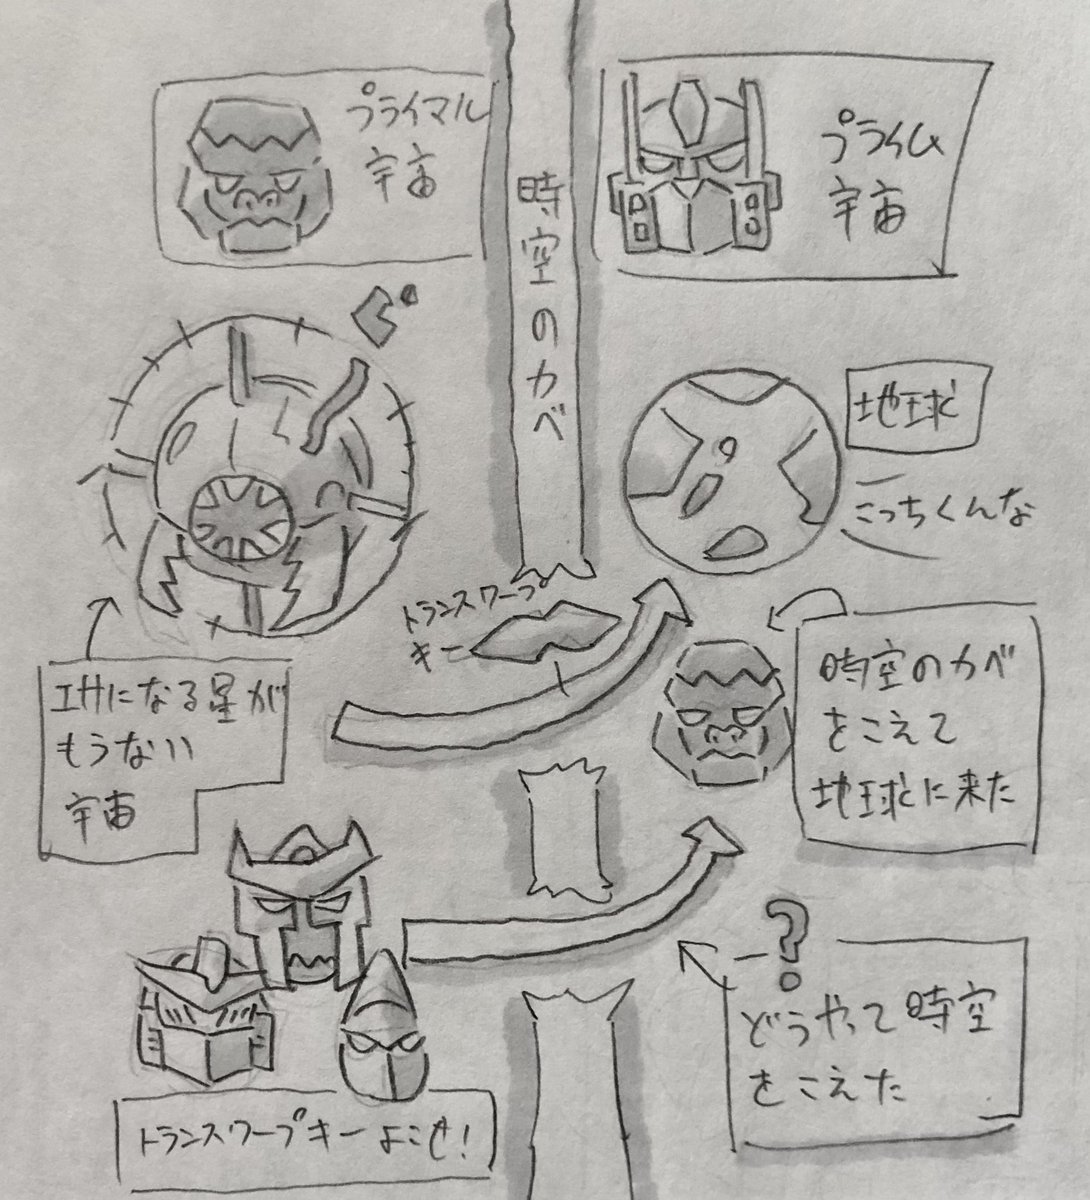 プライマル
宇宙
時空のカベ
プライム
宇宙
地球
こっちくんな
トランスワープ
キー
エサになる星が
もうない
宇宙
時空のカベ
をこえて
地球に来た
?
どうやって時空
をこえた
トランスワープキーよこせ!